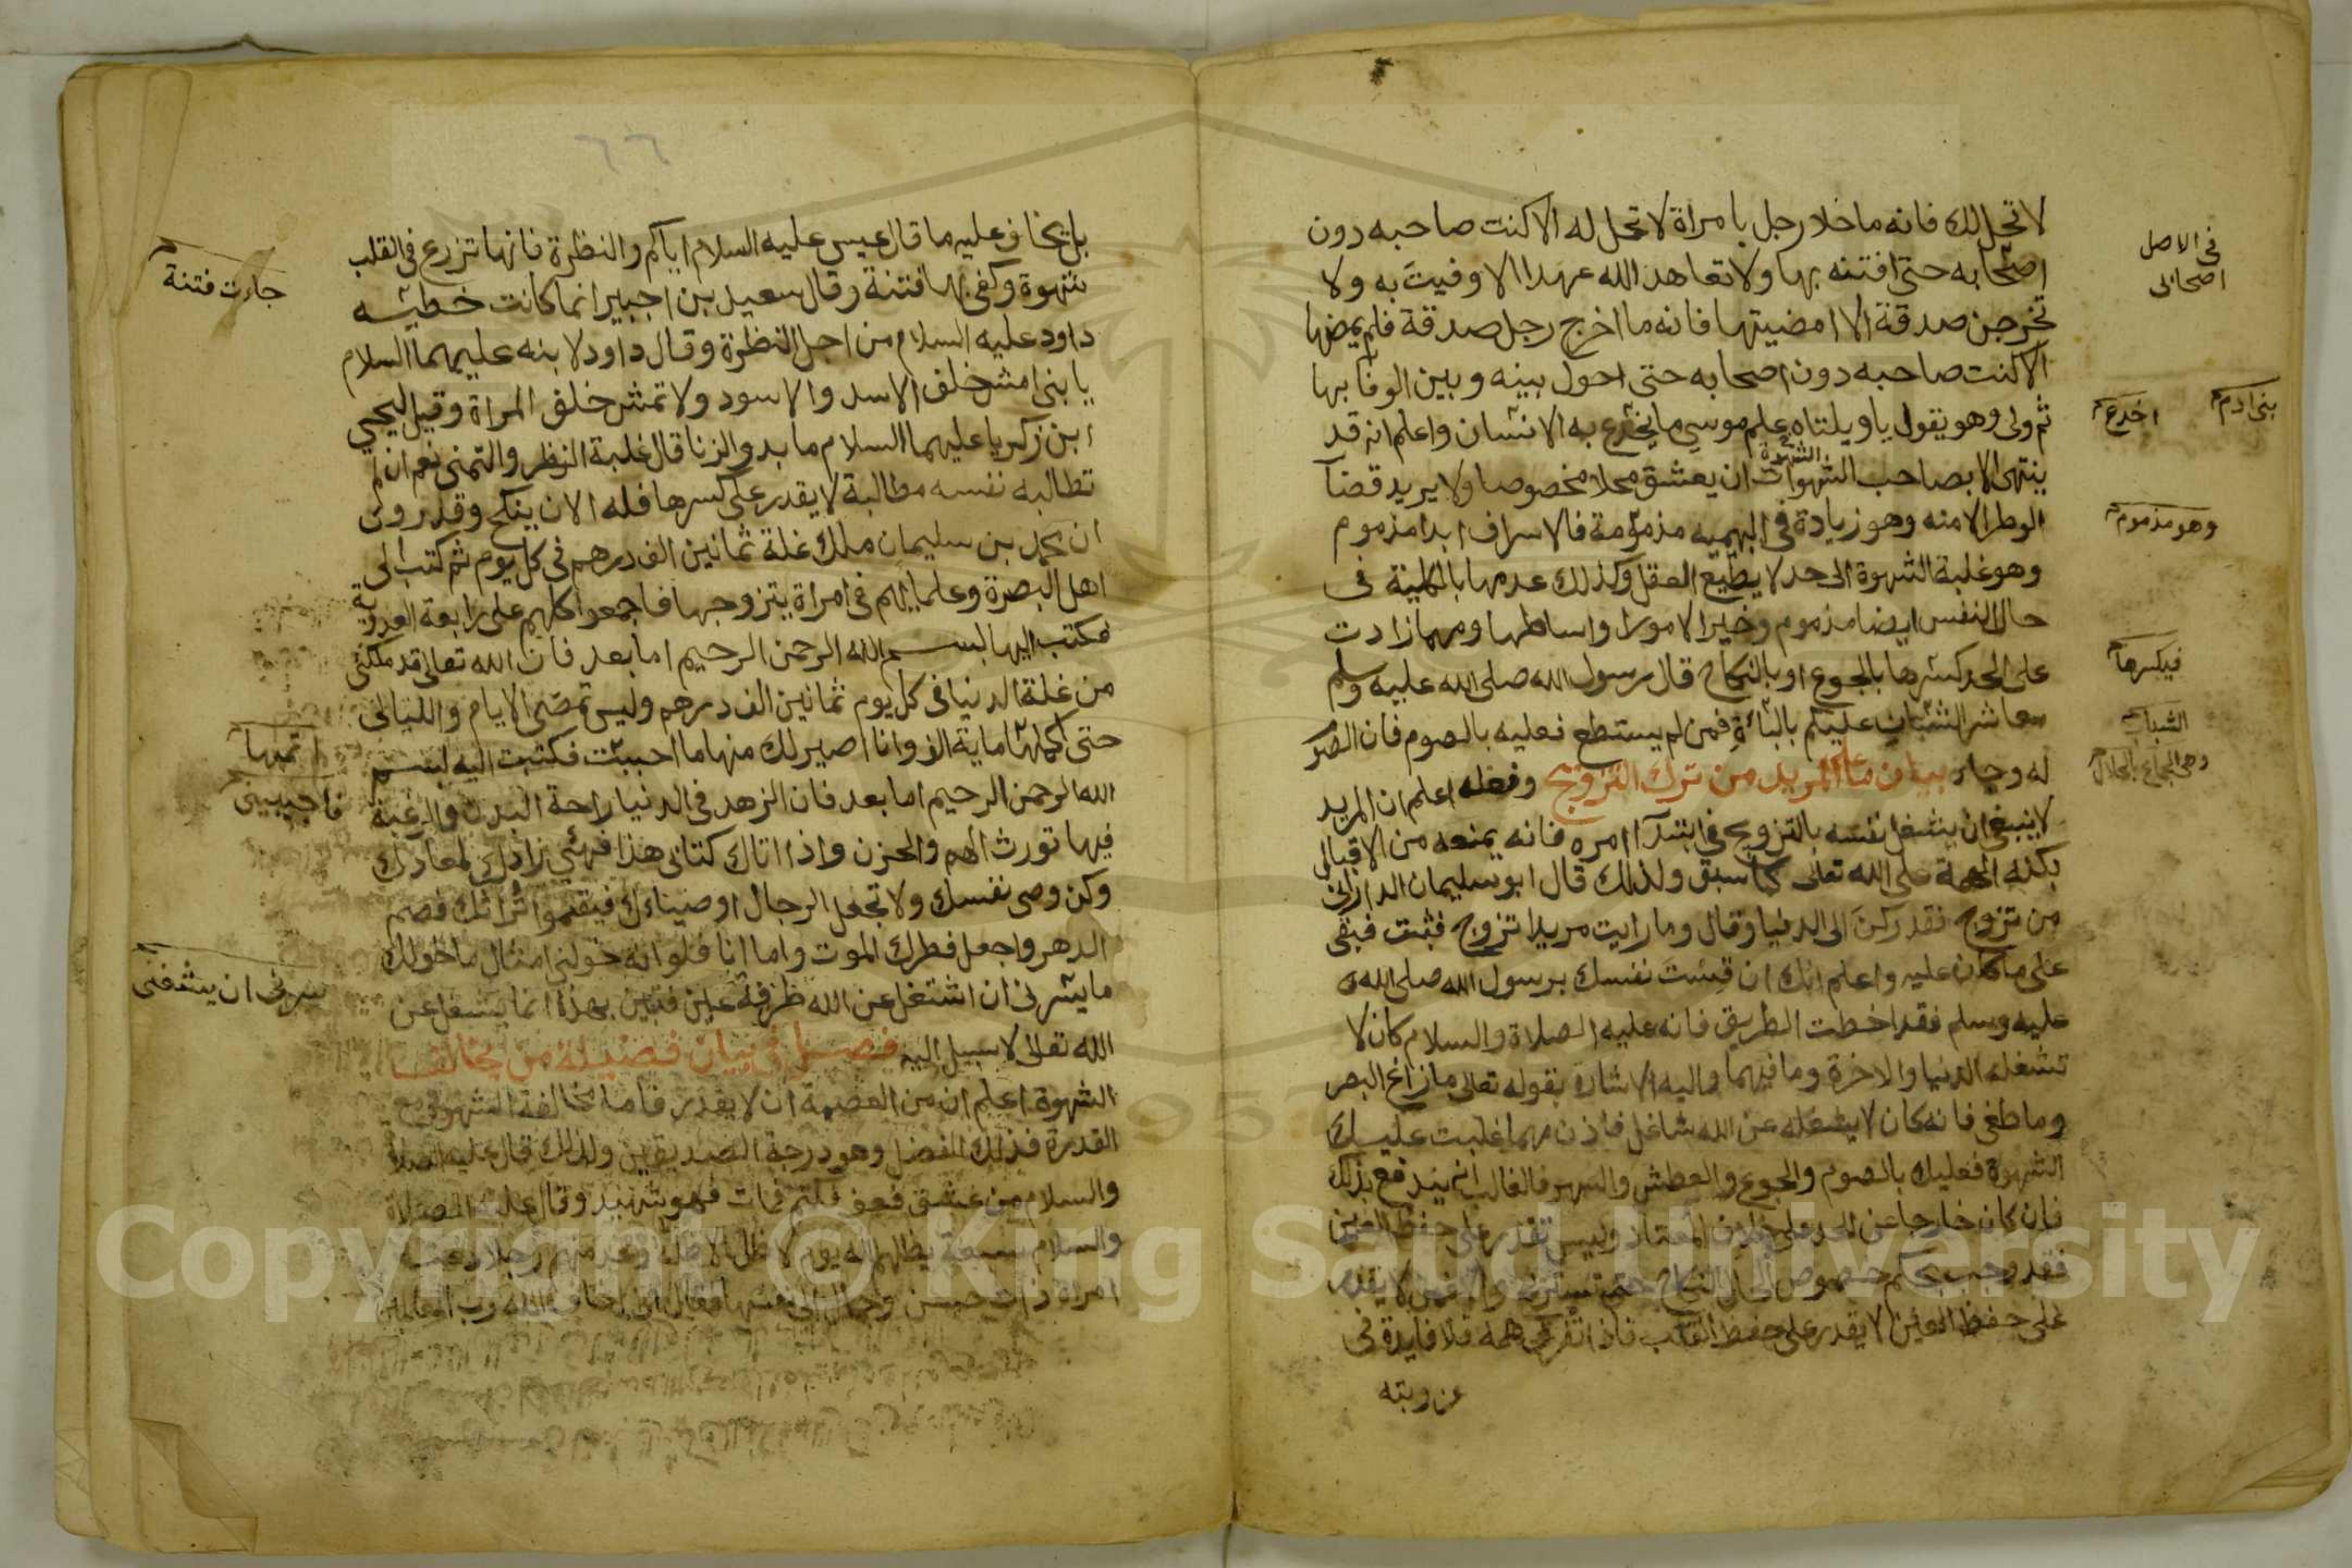 لا تحل لك فانه ما خلا رجل بامراة لا تحل له الا كنت صاحبه دون
اصحابه حتى افتنه بها ولا تعاهد الله عهدا الا وفيت به ولا
تخرجن صدقة الا امضيتها فانه ما اخرج رجل صدقة فلم يمضها
الا كنت صاحبه دون اصحابه حتى احول بينه وبين الوفا بها
ثم ولى وهو يقول يا ويلتاه علم موسى ما يخدع به الانسان واعلم انه قد
ينتهى الا بصاحب الشهوات ان يعشق محلا مخصوصا ولا يريد قضآ
الشهوة
الوطر الا منه وهو زيادة فى البهميه مذمومة فالاسراف ابدا مذموم
وهو غلبة الشهوة الى حد لا يطيع العقل وكذلك عدمها بالكلية فى
حال النفس ايضا مذموم وخير الامور اواساطها ومهما زادت
على الحد كسرها بالجوع او بالنكاح قال رسول الله صلى الله عليه وسلم
معاشر الشبان عليكم بالبائة فمن لم يستطع فعليه بالصوم فان الصوم
له وجاء بيان ما على المريد من ترك التزويج وفعله اعلم ان المريد
لا ينبغى ان يشغل نفسه بالتزويج فى ابتدآ امره فانه يمنعه من الاقبال
بكنه الهمة على الله تعالى كما سبق ولذلك قال ابو سليمان الدارانى
من تزوج فقد ركن الى الدنيا وقال وما رايت مريدا تزوج فثبت فبقى
على ما كان عليه واعلم انك ان قست نفسك برسول الله صلى الله
عليه وسلم فقد اخطت الطريق فانه عليه الصلاة والسلام كان لا
تشغله الدنيا والاخرة وما فيهما واليه الاشارة بقوله تعالى ما زاغ البصر
وما طغى فانه كان لا يشغله عن الله شاغل فاذن مهما غلبت عليك
الشهوة فعليك بالصوم والجوع والعطش والسهر فالغالب انه يندفع بذلك
فان كان خارجا عن الحد على خلاف المعتاد وليس تقدر على حفظ العين
فقد وجب بحكم خصوص الحال النكاح حتى لا يقدر
على حفظ العين لا يقدر على حفظ القلب فاذا تفرق همه فلا فايدة فى
عزوبته
فى الاصل
اصحابى
بنى ادم
اخدع
وهو مذموم
فيكسرها
الشباب
وهى الجماع بالحلال
٦٦
بل يخاف عليه ما قال عيسى عليه السلام اياكم والنظرة فانها تزرع فى القلب
شهوة وكفى بها فتنة وقال سعيد بن اجبير انما كانت خطيئه
داود عليه السلام من اجل النظرة وقال داود لابنه عليهما السلام
يا بنى امش خلف الاسد والاسود ولا تمش خلف المراة وقيل ليحيى
ابن زكريا عليهما السلام ما بدو الزنا قال غلبة النظر والتمنى نعم ان لم
تطالبه نفسه مطالبة لا يقدر على كسرها فله الان ينكح وقد روى
ان محمد بن سليمان ملك غلة ثمانين الف درهم فى كل يوم ثم كتب الى
اهل البصرة وعلمايهم فى امراة يتزوجها فاجمعوا كلهم على رابعة العدوية
فكتب اليها بسم الله الرحمن الرحيم اما بعد فان الله تعالى قد ملكنى
من غلة الدنيا فى كل يوم ثمانين الف درهم وليس تمضى الايام والليالى
حتى اكملها ماية الف وانا اصير لك منها ما احببت فكتبت اليه بسم
الله الرحمن الرحيم اما بعد فان الزهد فى الدنيا راحة البدن والرغبة
فيها تورث الهم والحزن واذا اتاك كتابى هذا فهئ زادك لمعادك
وكن وصى نفسك ولا تجعل الرجال اوصياءك فيقتسموا تراثك فصم
الدهر واجعل فطرك الموت واما انا فلو انه خولنى امثال ما خولك
ما يسرنى ان اشتغل عن الله طرفة عين فتبين بهذا ان ما يشغل عن
الله تعالى لا سبيل اليه فصل فى بيان فضيلة من يخالف
الشهوة اعلم ان من العصمة ان لا يقدر فاما مخالفة الشهوة مع
القدرة فذلك الفضل وهو درجة الصديقين ولذلك قال عليه الصلاة
والسلام من عشق فعف فكتم فمات فهو شهيد وقال عليه الصلاة
والسلام سبعة يظلهم الله يوم لا ظل الا ظله وعد منهم رجلا دعته
امراة ذات حسن وجمال الى نفسها فقال انى اخاف الله رب العالمين
جاءت فتنة
اتمها
فاجيبينى
يسرنى ان يشغلنى
Copyright © King Saud University
957